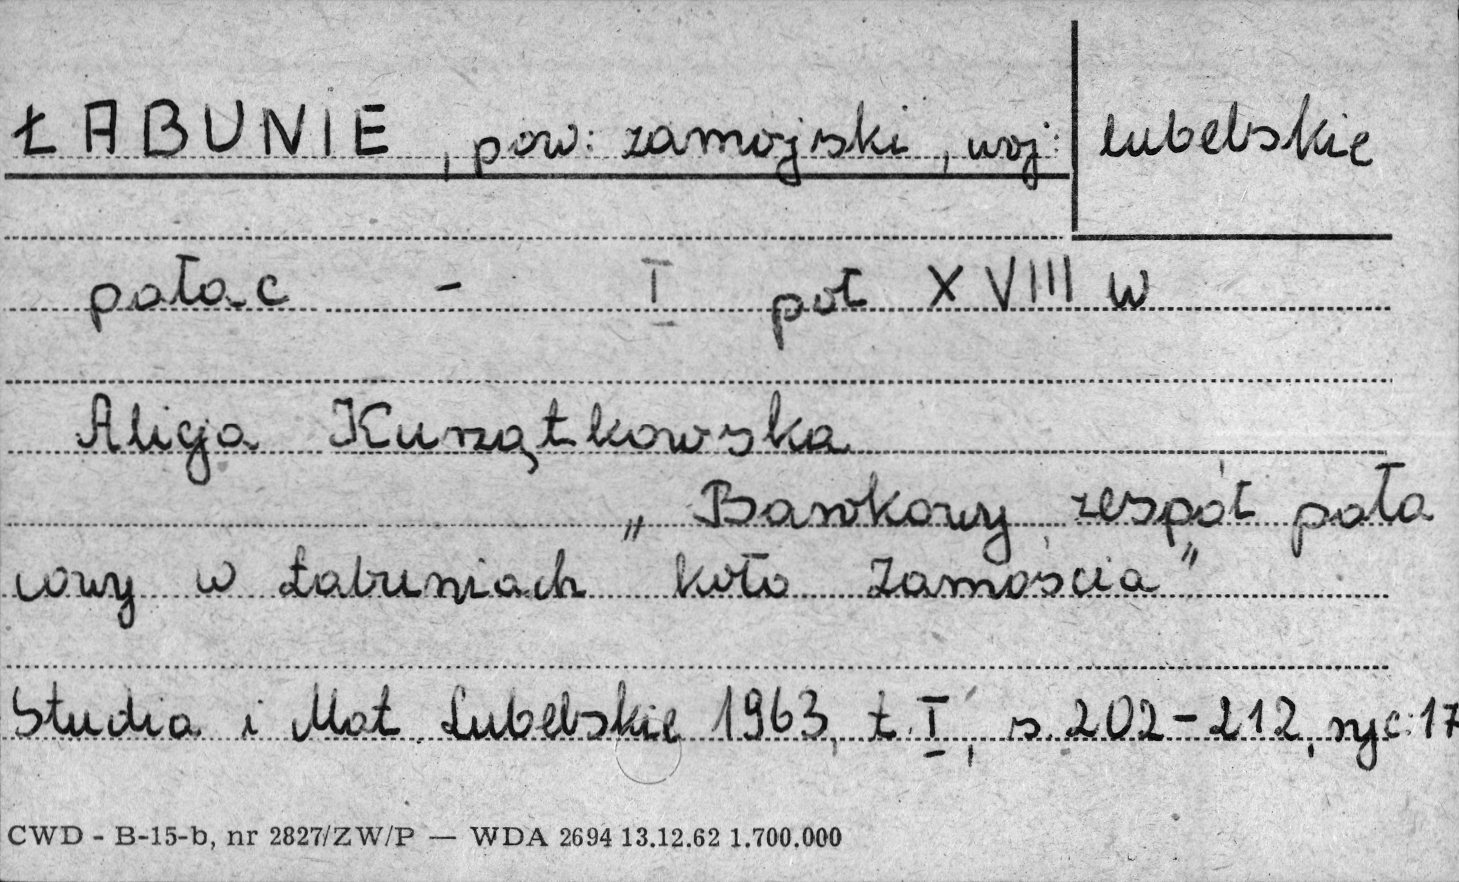 ŁABUNIE, pow: zamojski, woj: lubelskie
pałac - I poł XVIII w
Alicja Kurzątkowska
„Barokowy zespół pała
cowy w Łabuniach koło Zamościa”
Studia i Mat. Lubelskie 1963, t. I, s. 202-212, ryc: 17
CWD - B-15-b, nr 2827/ZW/P — WDA 2694 13.12.62 1.700.000